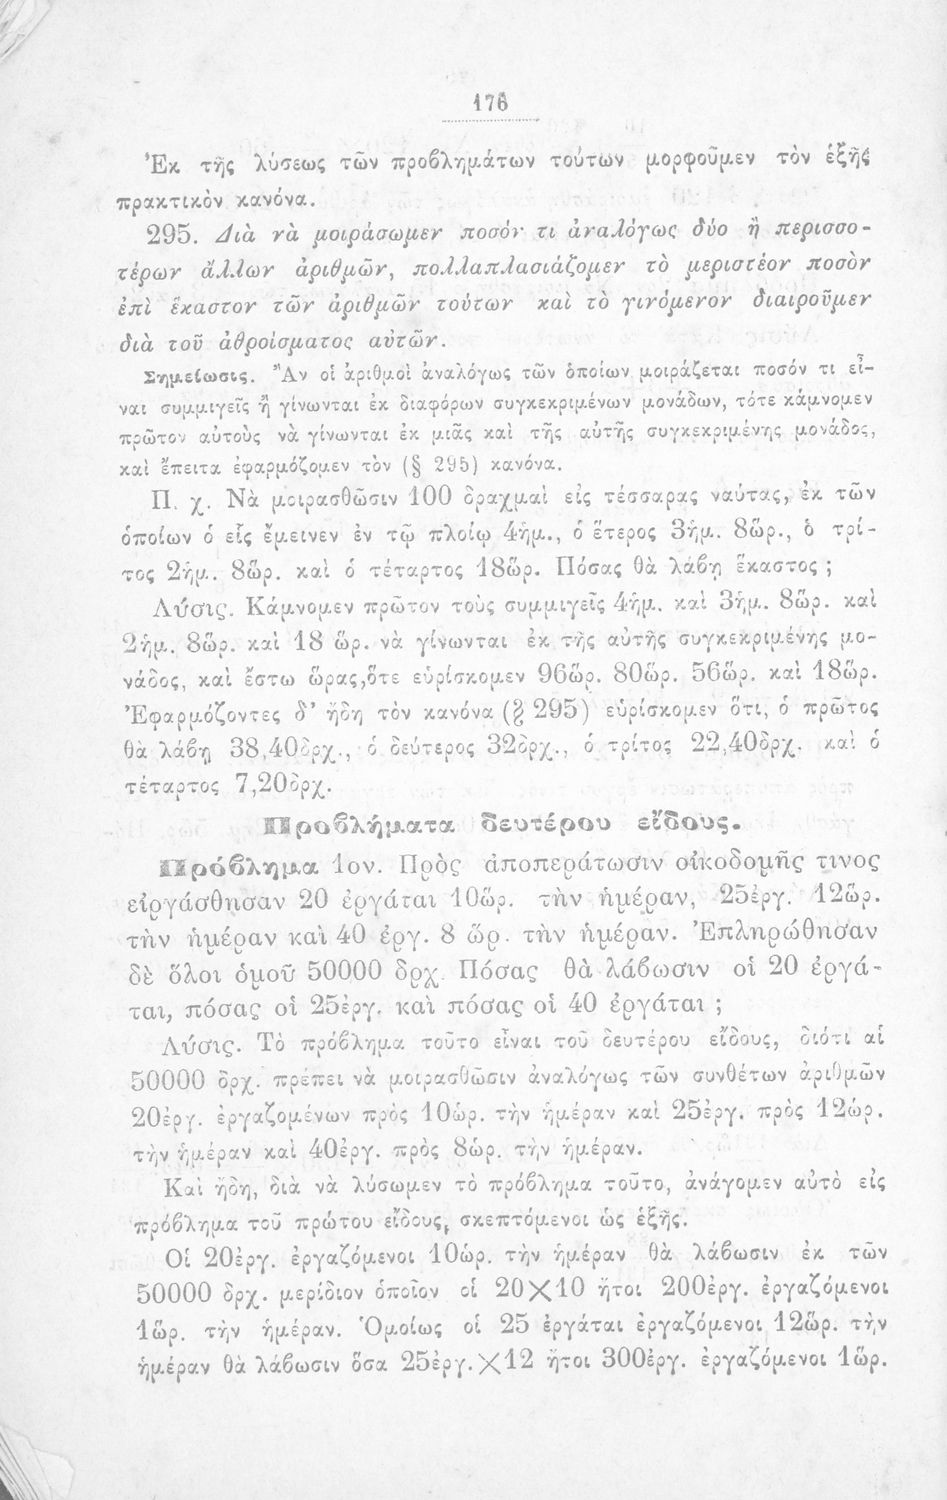 176
Ἐκ τῆς λύσεως τῶν προβλημάτων τούτων μορφοῦμεν τὸν ἑξῆς
πρακτικὸν κανόνα.
295. Διὰ νὰ μοιράσωμεν ποσόν τι ἀναλόγως δύο ἢ περισσο-
τέρων ἄλλων ἀριθμῶν, πολλαπλασιάζομεν τὸ μεριστέον ποσὸν
ἐπὶ ἕκαστον τῶν ἀριθμῶν τούτων καὶ τὸ γινόμενον διαιροῦμεν
διὰ τοῦ ἀθροίσματος αὐτῶν.
Σημείωσις. Ἂν οἱ ἀριθμοὶ ἀναλόγως τῶν ὁποίων μοιράζεται ποσόν τι εἶ-
ναι συμμιγεῖς ἢ γίνωνται ἐκ διαφόρων συγκεκριμένων μονάδων, τότε κάμνομεν
πρῶτον αὐτοὺς νὰ γίνωνται ἐκ μιᾶς καὶ τῆς αὐτῆς συγκεκριμένης μονάδος,
καὶ ἔπειτα ἐφαρμόζομεν τὸν (§ 295) κανόνα.
Π. χ. Νὰ μοιρασθῶσιν 100 δραχμαὶ εἰς τέσσαρας ναύτας, ἐκ τῶν
ὁποίων ὁ εἷς ἔμεινεν ἐν τῷ πλοίῳ 4ἡμ., ὁ ἕτερος 3ἡμ. 8ὥρ., ὁ τρί-
τος 2ἡμ. 8ὥρ. καὶ ὁ τέταρτος 18ὥρ. Πόσας θὰ λάβῃ ἕκαστος ;
Λύσις. Κάμνομεν πρῶτον τοὺς συμμιγεῖς 4ἡμ. καὶ 3ἡμ. 8ὥρ. καὶ
2ἡμ. 8ὥρ. καὶ 18 ὥρ. νὰ γίνωνται ἐκ τῆς αὐτῆς συγκεκριμένης μο-
νάδος, καὶ ἔστω ὥρας,ὅτε εὑρίσκομεν 96ὥρ. 80ὥρ. 56ὥρ. καὶ 18ὥρ.
Ἐφαρμόζοντες δ' ἤδη τὸν κανόνα (§ 295) εὑρίσκομεν ὅτι, ὁ πρῶτος
θὰ λάβῃ 38,40δρχ., ὁ δεύτερος 32δρχ., ὁ τρίτος 22,40δρχ. καὶ ὁ
τέταρτος 7,20δρχ.
Προβλήματα δευτέρου εἴδους.
Πρόβλημα 1ον. Πρὸς ἀποπεράτωσιν οἰκοδομῆς τινος
εἰργάσθησαν 20 ἐργάται 10ὥρ. τὴν ἡμέραν, 25ἐργ. 12ὥρ.
τὴν ἡμέραν καὶ 40 ἐργ. 8 ὥρ. τὴν ἡμέραν. Ἐπληρώθησαν
δὲ ὅλοι ὁμοῦ 50000 δρχ. Πόσας θὰ λάβωσιν οἱ 20 ἐργά-
ται, πόσας οἱ 25ἐργ. καὶ πόσας οἱ 40 ἐργάται ;
Λύσις. Τὸ πρόβλημα τοῦτο εἶναι τοῦ δευτέρου εἴδους, διότι αἱ
50000 δρχ. πρέπει νὰ μοιρασθῶσιν ἀναλόγως τῶν συνθέτων ἀριθμῶν
20ἐργ. ἐργαζομένων πρὸς 10ὡρ. τὴν ἡμέραν καὶ 25ἐργ. πρὸς 12ὡρ.
τὴν ἡμέραν καὶ 40ἐργ. πρὸς 8ὡρ. τὴν ἡμέραν.
Καὶ ἤδη, διὰ νὰ λύσωμεν τὸ πρόβλημα τοῦτο, ἀνάγομεν αὐτὸ εἰς
πρόβλημα τοῦ πρώτου εἴδους, σκεπτόμενοι ὡς ἑξῆς.
Οἱ 20ἐργ. ἐργαζόμενοι 10ὡρ. τὴν ἡμέραν θὰ λάβωσιν ἐκ τῶν
50000 δρχ. μερίδιον ὁποῖον οἱ 20×10 ἤτοι 200ἐργ. ἐργαζόμενοι
1ὡρ. τὴν ἡμέραν. Ὁμοίως οἱ 25 ἐργάται ἐργαζόμενοι 12ὥρ. τὴν
ἡμέραν θὰ λάβωσιν ὅσα 25ἐργ.×12 ἤτοι 300ἐργ. ἐργαζόμενοι 1ὥρ.